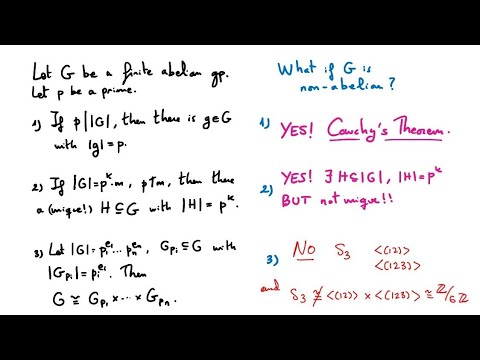 Let G be a finite abelian gp.
Let p be a prime.
1) If p||G|, then there is g∈G
with |g|=p.
2) If |G|=p^k·m, p∤m, then there
a (unique!) H⊆G with |H|=p^k.
3) Let |G|=p_1^{e_1}...p_n^{e_n}, G_{p_i}⊆G with
|G_{p_i}|=p_i^{e_i}. Then
G≅G_{p_1}×...×G_{p_n}.
What if G is
non-abelian?
1) YES! Cauchy's Theorem.
2) YES! ∃ H⊆|G|, |H|=p^k
BUT not unique!!
3) No S_3 <(12)>
<(123)>
and S_3≇<(12)>×<(123)>≅ℤ/6ℤ